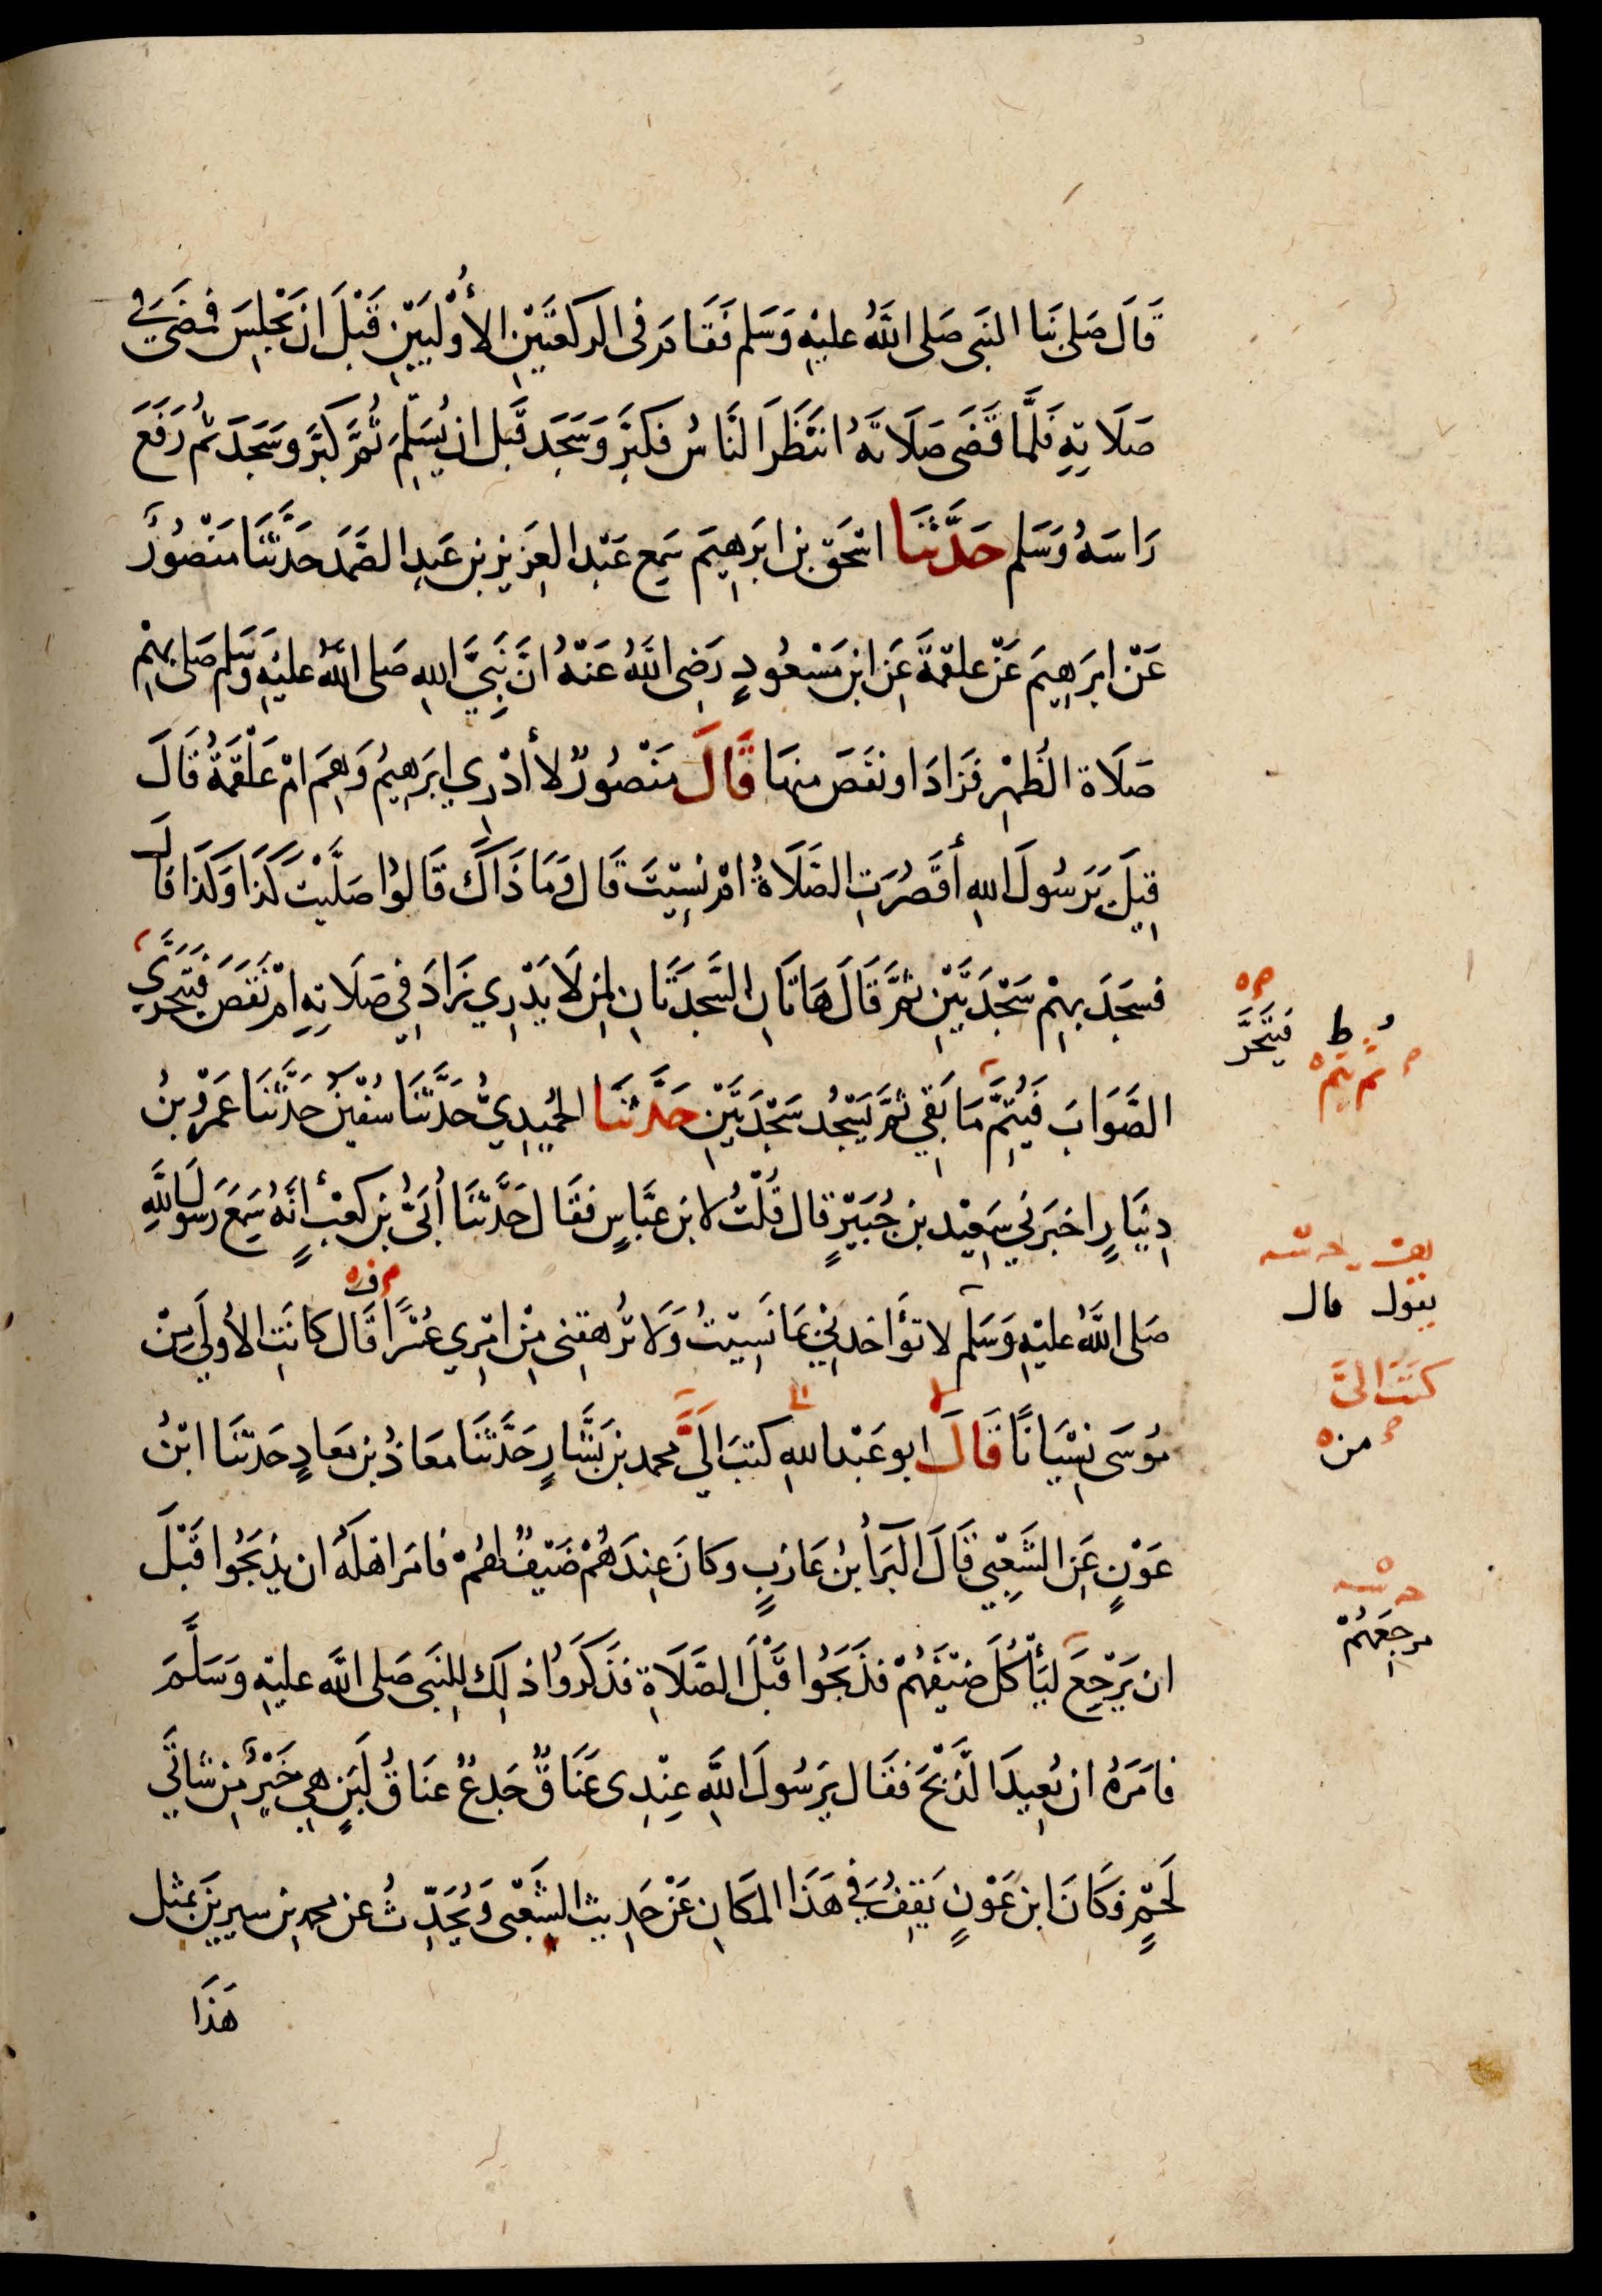 قَالَ صَلى بنَا النبَى صَلى اللَّهُ عليْهِ وَسَلم فَقَامَ فى الركعَتَيْنِ الأُوْلَيَيْنِ قَبْلَ ان يَجْلِسَ فمضَى فِى
صَلَاتِهِ فَلَمَّا قَضَى صَلَاتَهُ انتَظَرَ النَّاسُ فكبرَ وَسَجَد قَبل ان يُسَلِّمَ ثُمَّ كبَّرَ وسَجَدَ ثم رَفَعَ
رَاسَهُ وَسَلم حَدَّثنَا اسحَق بن ابرَهِيمَ سَمِع عَبْد العَزيز بن عَبدِ الصَّمَد حَدَّثَنَا مَنْصُورٌ
عَنْ ابرَهِيمَ عَنْ علقمَةَ عَن ابن مَسْعُودٍ رَضِى اللَّهُ عَنْهُ انَّ نَبِيَّ اللهِ صَلى اللَّهُ عليْهِ وَسَلم صَلى بهِمْ
صَلَاة الظُهْرِ فَزَادَ او نقَصَ منهَا قَالَ مَنْصُورٌ لا أدْرِي ابرَهِيمُ وَهِمَ امْ عَلْقمَةُ قَالَ
قِيلَ يَرَسُولَ اللهِ أقَصُرَتِ الصَّلَاةُ امْ نسِيْتَ قَال وَمَا ذَاكَ قَالوُا صَلَّيْتَ كَذَا وَكَذَا قَالَ
فسَجَدَ بهِمْ سَجْدَتَيْنِ ثمَّ قَالَ هَاتَانِ السَّجدَتَانِ لمِن لَا يَدْرِي زَادَ فِي صَلَاتِهِ امْ نَقَصَ فَيَتَحَرَّي
فَيَتَحَرَّ
ثم يُتِمُّ
الصَّوَابَ فَيُتِمُّ مَا بَقِي ثمَّ يَسْجُد سَجْدَتَيْنِ حَدَّثنَا الحُمَيْدِيُّ حَدَّثَنَا سُفْيٰنُ حَدَّثنَا عَمْرُو بنُ
دِينَارٍ اخبَرَنِي سَعِيْد بن جُبَيْرٍ قال قُلْتُ لابن عبَّاسٍ فقَال حَدَّثنَا أُبَيُّ بن كعْبٍ أنَّهُ سَمِعَ رَسُولَ اللَّهِ
يقول قال
صَلى اللَّهُ عليْهِ وَسَلم لا تؤَاخِذنِي بمَا نَسِيْتُ وَلَا تُرْهِقنِى مِنْ امْرِي عُسْرًا قَال كانَتِ الأُولَى مِنْ
كتَبَ اليَّ
من
مُوسَى نِسْيَانًا قَالَ ابو عَبْد اللهِ كتبَ الَيَّ محمد بن بَشَّارٍ حَدَّثَنَا معَاذُ بن معَاذٍ حَدثنَا ابْنُ
عَوْنٍ عَنِ الشَّعْبِي قَالَ قالَ البَرَاُ بنُ عَازبٍ وكانَ عِندَهُمْ ضَيْفٌ لهُمْ فامَرَ اهْلَهُ ان يذبَحُوا قَبْلَ
ان يَرْجِعَ ليَأْكُلَ ضَيْفهُمْ فذَبَحُوا قَبْلَ الصَّلَاةِ فذَكَرُوا ذلِك للِنبَى صَلى اللَّه عليْهِ وَسَلَّمَ
مرجِعَهُمْ
فامَرَهُ ان يُعِيدَ الذَّبْحَ فقَال يرَسُولَ اللَّهِ عِنْدِى عَنَاقٌ جَذعٌ عنَاقُ لَبَنٍ هِي خَيْرٌ مِن شاتَي
لَحْمٍ وَكَانَ ابن عَوْنٍ يَقِفُ فِي هَذَا المَكَانِ عَنْ حَدِيث الشَّعْبِى وَيُحَدِّثُ عن محمدِ بن سِيرِينَ بمثل
هَذَا